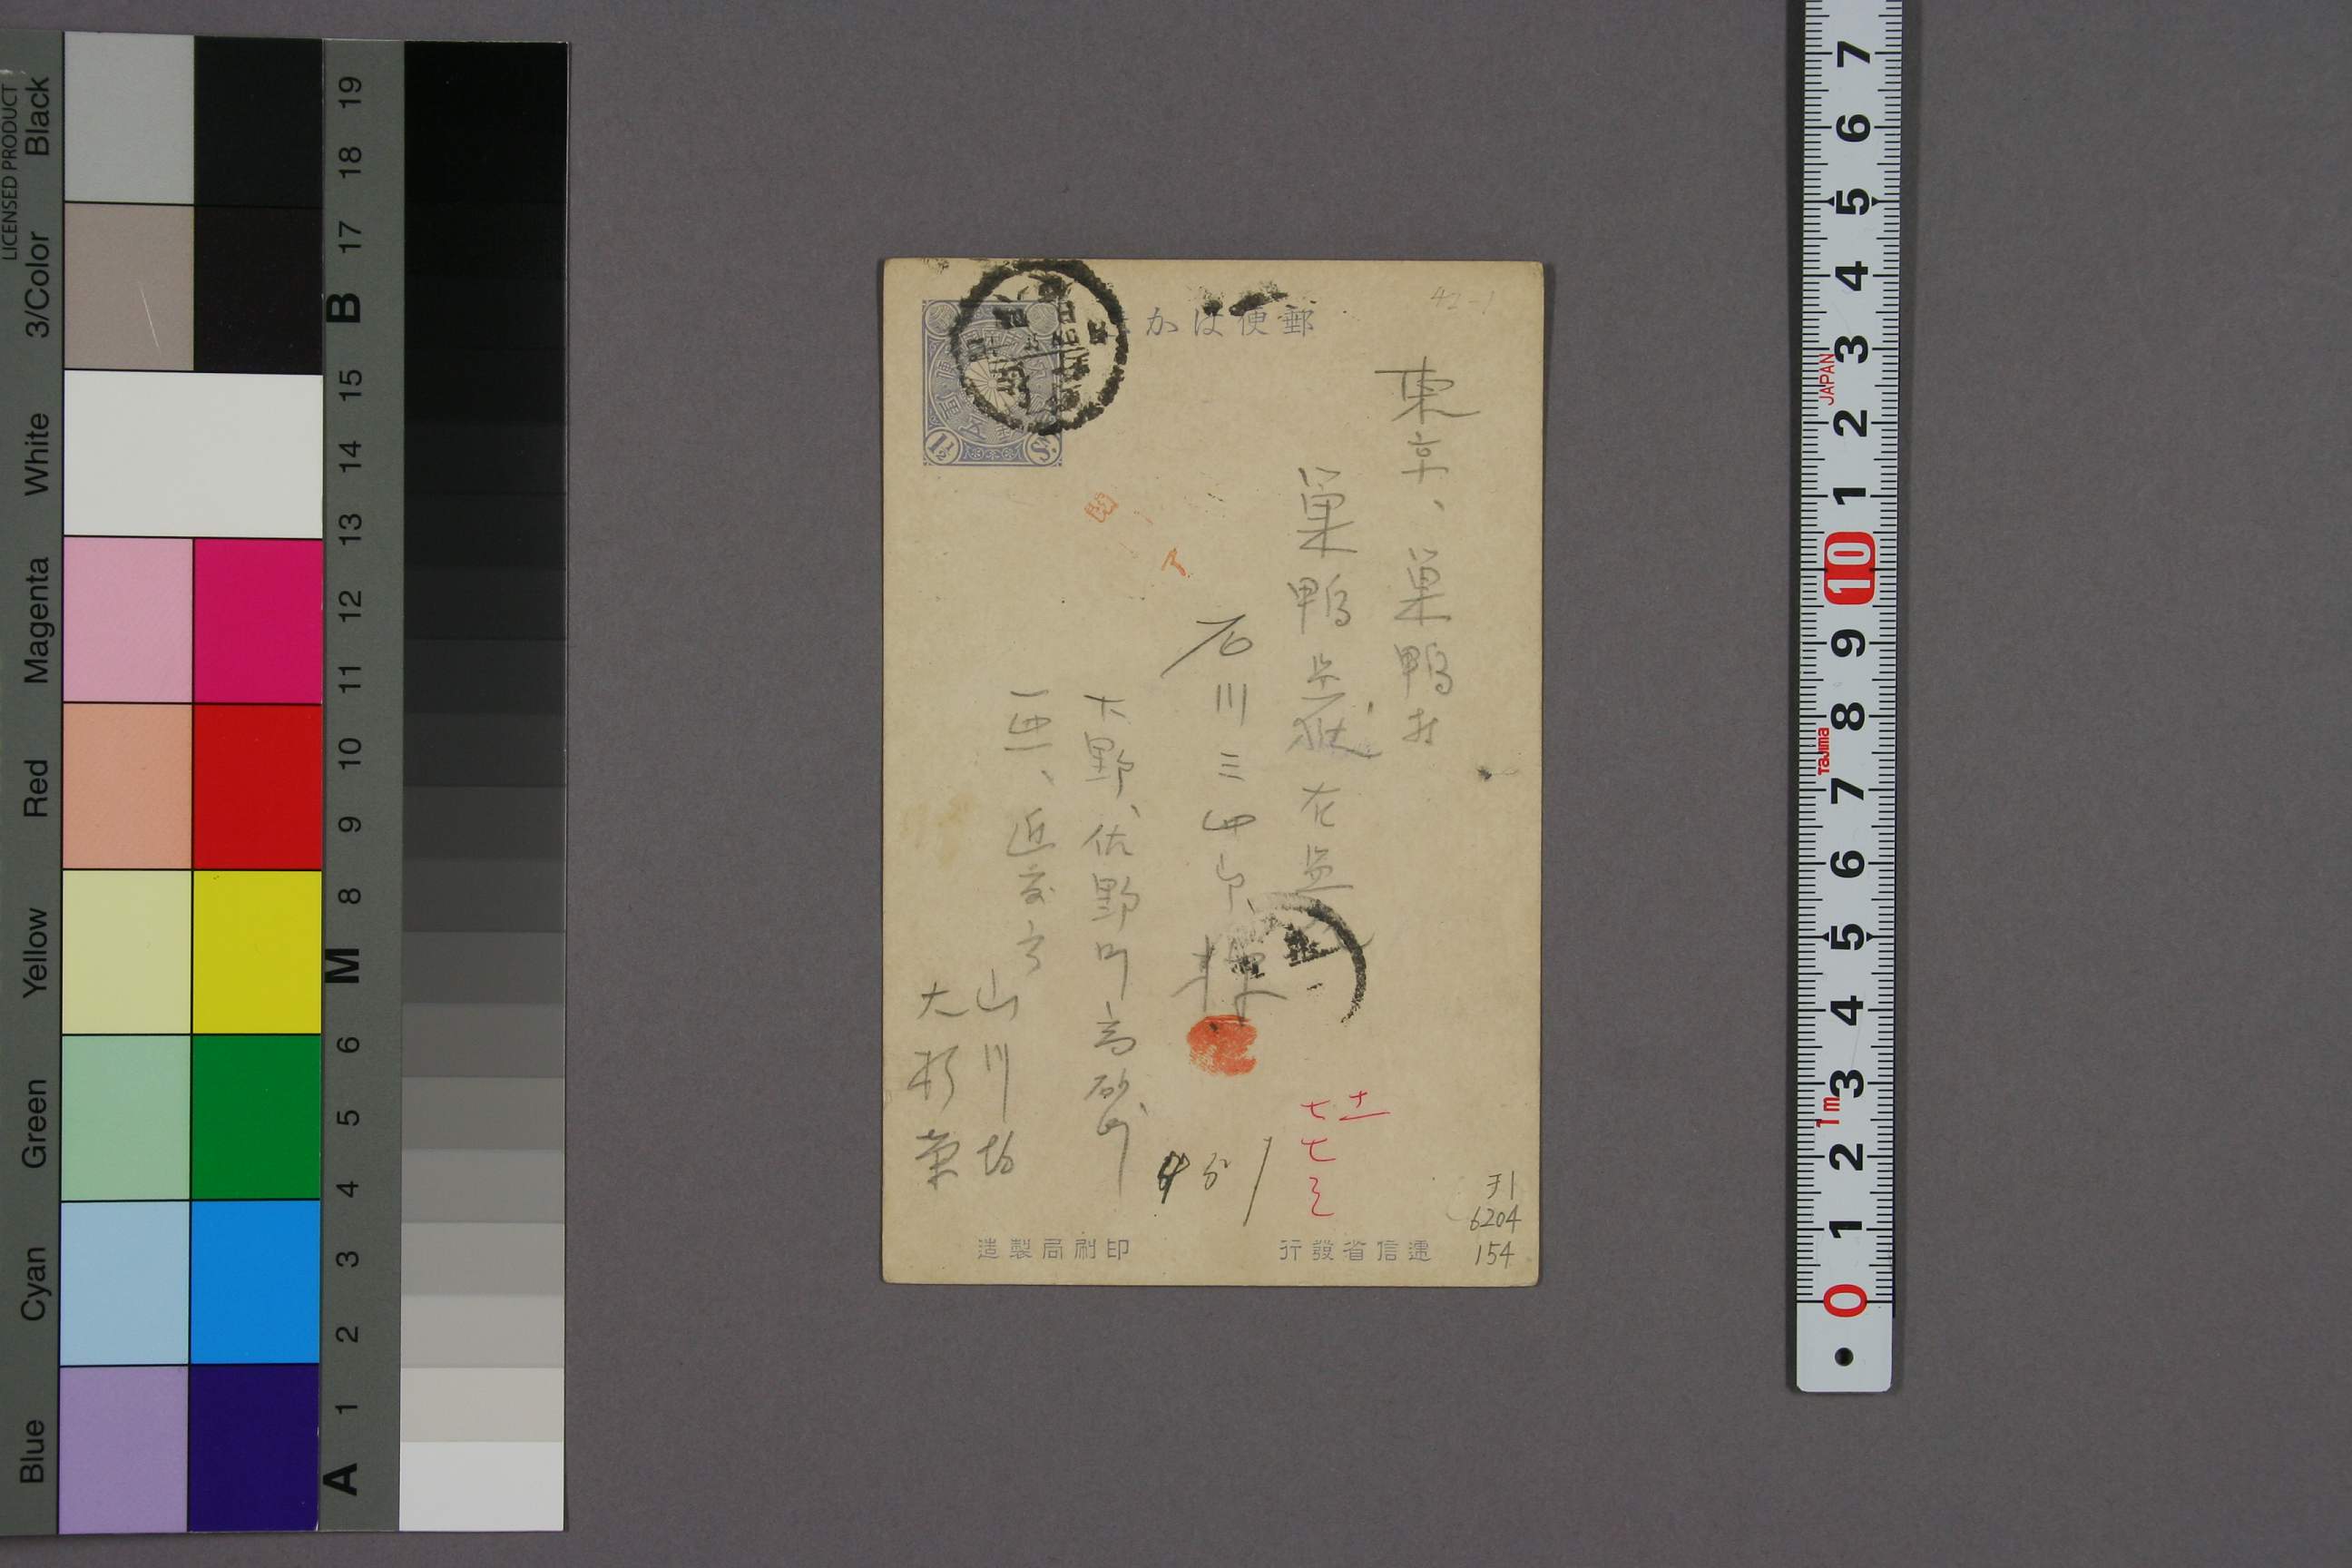 LICENSED PRODUCT
Black
3/Color
White
Magenta
Red
Yellow
Green
Cyan
Blue
19
18
17
B
15
14
13
12
11
10
9
8
M
6
5
4
3
2
1
A
郵便はか
42-1
1½
S.
東京、巣鴨村
巣鴨監獄在監
石川三四郎様
下野、佐野町高砂町
一四一、近藤方
山川均
大杉栄
十一
七七三
451
ヲ1
6204
154
逓信省發行
印刷局製造
7
6
5
4
3
JAPAN
2
1
10
9
8
Tajima
7
6
5
4
3
1m
2
1
0